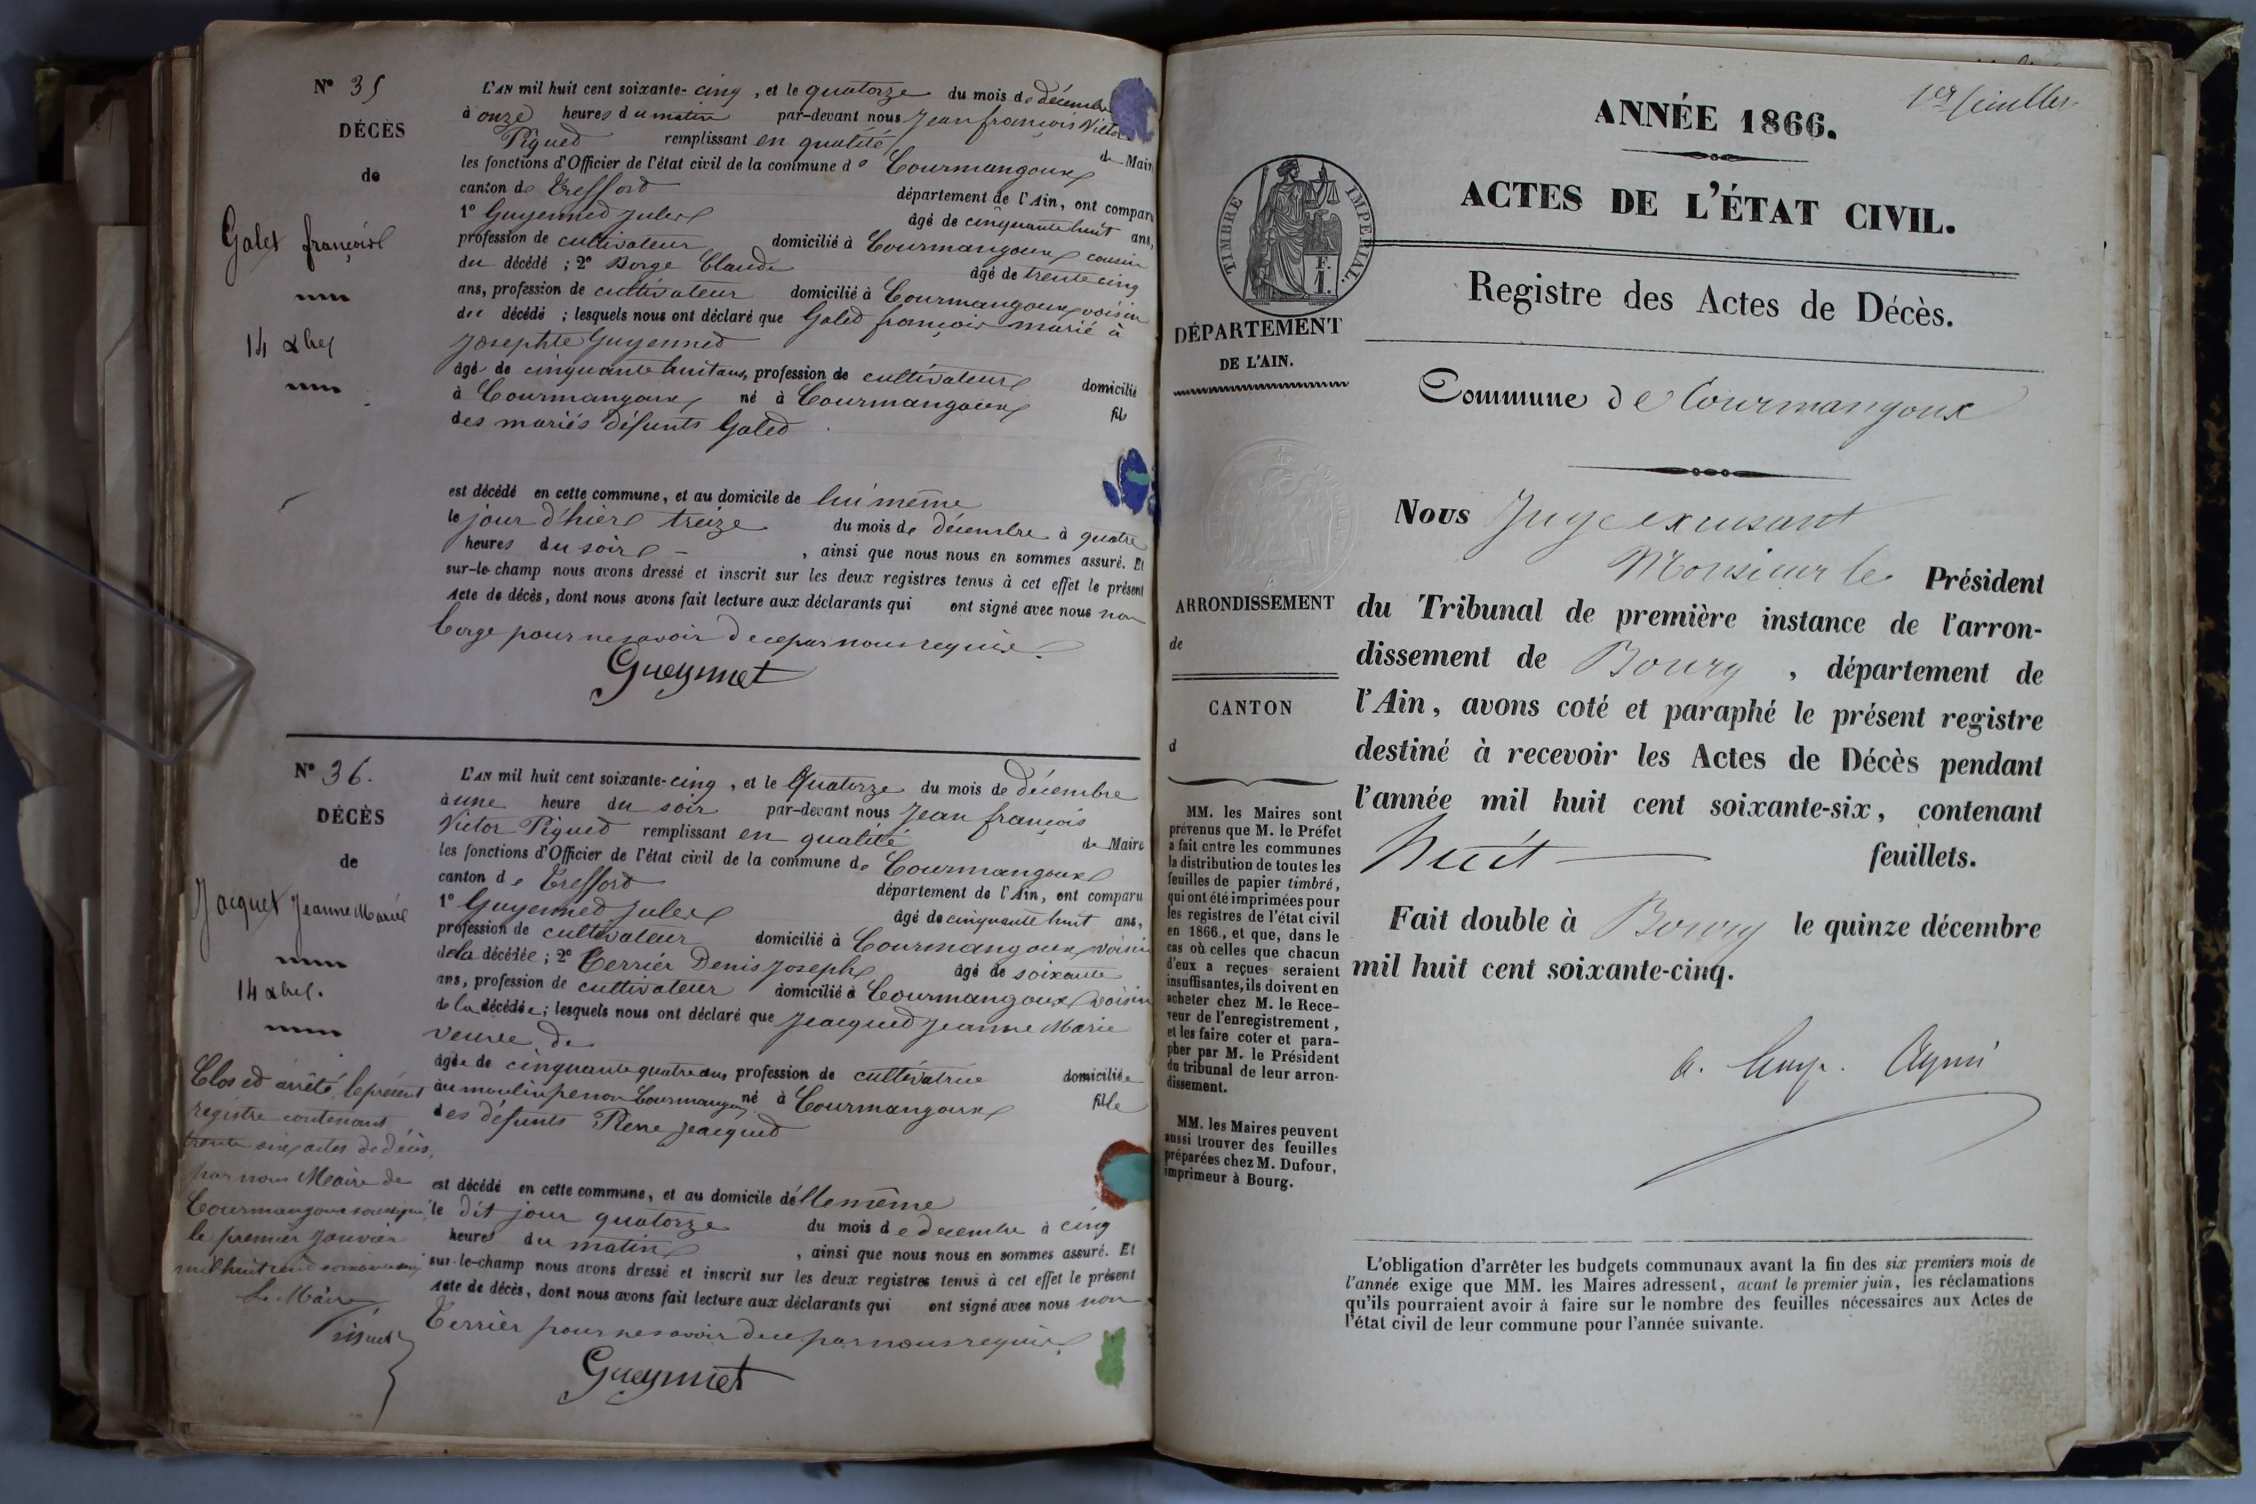 N° 35
DÉCÈS
de
Galet françois
14 xbre
L'AN mil huit cent soixante-cinq, et le quatorze du mois de décembre
à onze heures du matin par-devant nous Jean françois Victor
Piqued remplissant en qualité de Maire
les fonctions d'Officier de l'état civil de la commune de Courmangoux
canton de Trefford département de l'Ain, ont comparu
1° Guyenned Jules âgé de cinquante huit ans,
profession de cultivateur domicilié à Courmangoux cousin
du décédé ; 2° Borge Claude âgé de trente cinq
ans, profession de cultivateur domicilié à Courmangoux voisin
du décédé ; lesquels nous ont déclaré que Galed françois marié à
Josephte Guyenned
âgé de cinquante huit ans, profession de cultivateur domicilié
à Courmangoux né à Courmangoux fils
des mariés défunts Galed
est décédé en cette commune, et au domicile de lui même
le jour d'hier treize du mois de décembre à quatre
heures du soir , ainsi que nous nous en sommes assuré. Et
sur-le-champ nous avons dressé et inscrit sur les deux registres tenus à cet effet le présent
Acte de décès, dont nous avons fait lecture aux déclarants qui ont signé avec nous non
borge pour ne savoir de ce par nous requis.
Gueynnet
N° 36.
DÉCÈS
de
Jacquet Jeanne Marie
14 xbre.
L'AN mil huit cent soixante-cinq, et le Quatorze du mois de décembre
à une heure du soir par-devant nous Jean françois
Victor Piqued remplissant en qualité de Maire
les fonctions d'Officier de l'état civil de la commune de Courmangoux
canton de Trefford département de l'Ain, ont comparu
1° Guyenned Jules âgé de cinquante huit ans,
profession de cultivateur domicilié à Courmangoux voisin
de la décédée ; 2° Terrier Denis Joseph âgé de soixante
ans, profession de cultivateur domicilié à Courmangoux voisin
de la décédée ; lesquels nous ont déclaré que Jacqued Jeanne Marie
veuve de
âgée de cinquante quatre ans, profession de cultivatrice domiciliée
au moulin penon Courmangoux né à Courmangoux fille
des défunts Pierre Jacqued
est décédé en cette commune, et au domicile d'elle même
le dit jour quatorze du mois de decembre à cinq
heures du matin , ainsi que nous nous en sommes assuré. Et
sur-le-champ nous avons dressé et inscrit sur les deux registres tenus à cet effet le présent
Acte de décès, dont nous avons fait lecture aux déclarants qui ont signé avec nous non
Terrier pour ne savoir de ce par nous requis.
Gueynnet
Clos et arrêté le présent
registre contenant
trente six actes de décès,
par nous Maire de
Courmangoux soussigné
le premier Janvier
mil huit cent soixante
Le Maire
Piquet
1er feuillet
ANNÉE 1866.
ACTES DE L'ÉTAT CIVIL.
Registre des Actes de Décès.
Commune de Courmangoux
TIMBRE IMPÉRIAL.
F.
1.
DÉPARTEMENT
DE L'AIN.
ARRONDISSEMENT
de
CANTON
d
MM. les Maires sont
prévenus que M. le Préfet
a fait entre les communes
la distribution de toutes les
feuilles de papier timbré,
qui ont été imprimées pour
les registres de l'état civil
en 1866, et que, dans le
cas où celles que chacun
d'eux a reçues seraient
insuffisantes, ils doivent en
acheter chez M. le Rece-
veur de l'enregistrement,
et les faire coter et para-
pher par M. le Président
du tribunal de leur arron-
dissement.
MM. les Maires peuvent
aussi trouver des feuilles
préparées chez M. Dufour,
imprimeur à Bourg.
Nous Juge excusant
Monsieur le Président
du Tribunal de première instance de l'arron-
dissement de Bourg, département de
l'Ain, avons coté et paraphé le présent registre
destiné à recevoir les Actes de Décès pendant
l'année mil huit cent soixante-six, contenant
huit feuillets.
Fait double à Bourg le quinze décembre
mil huit cent soixante-cinq.
L'obligation d'arrêter les budgets communaux avant la fin des six premiers mois de
l'année exige que MM. les Maires adressent, avant le premier juin, les réclamations
qu'ils pourraient avoir à faire sur le nombre des feuilles nécessaires aux Actes de
l'état civil de leur commune pour l'année suivante.